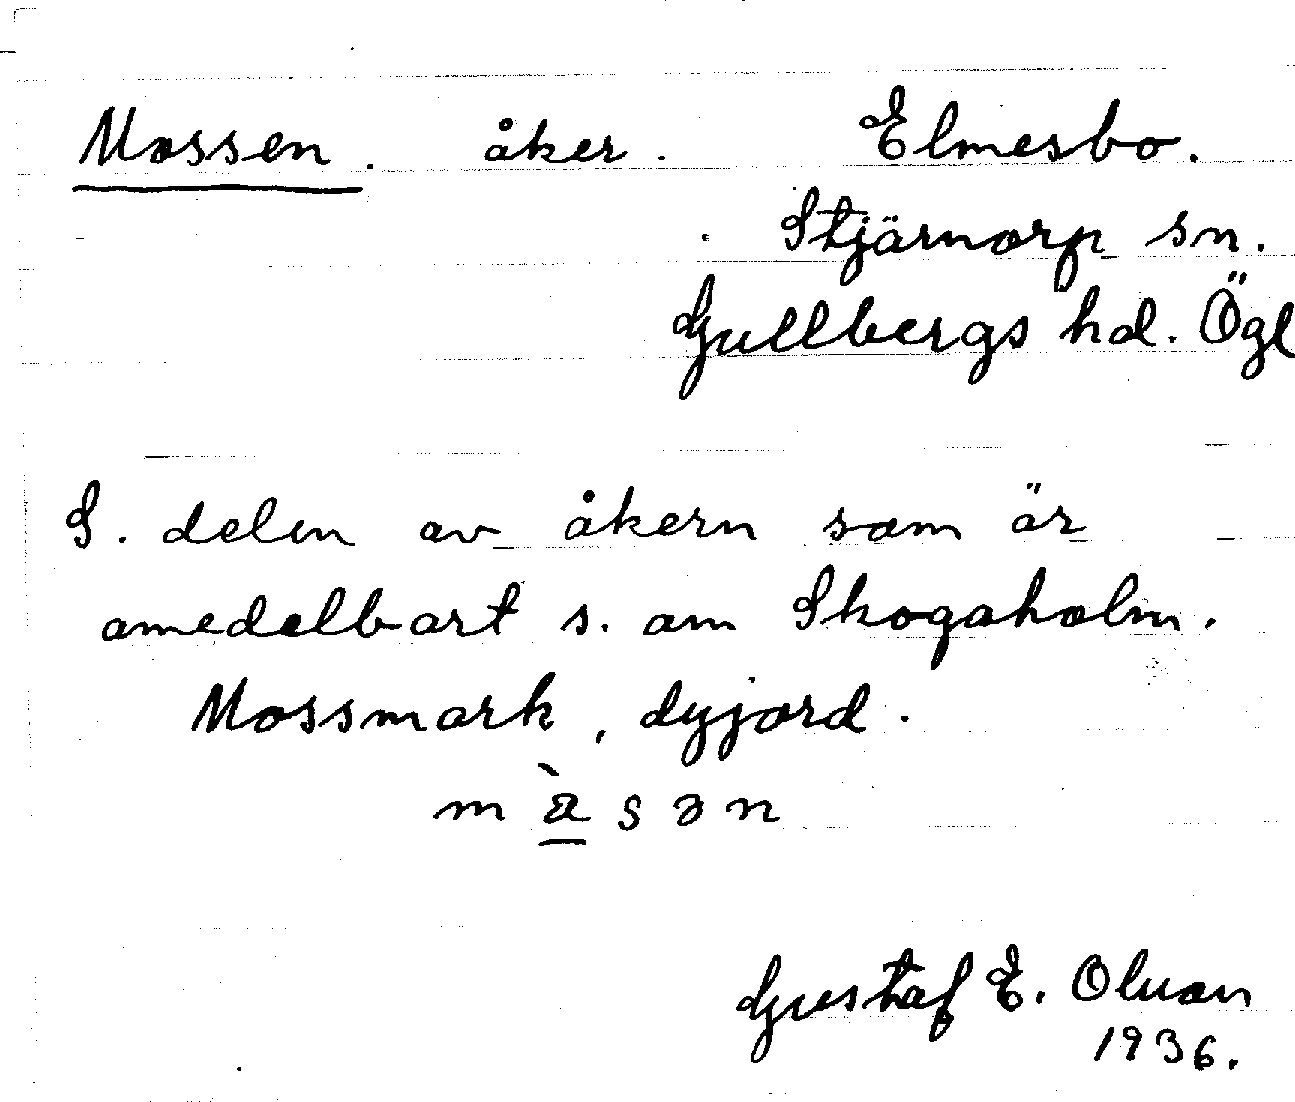 Mossen. åker. Elmesbo.
Stjärnorp sn.
Gullbergs hd. Ögl
S. delen av åkern som är
omedelbart s. om Skogaholm.
Mossmark, dyjord.
m à̱ s ə n
Gustaf E. Olson
1936.